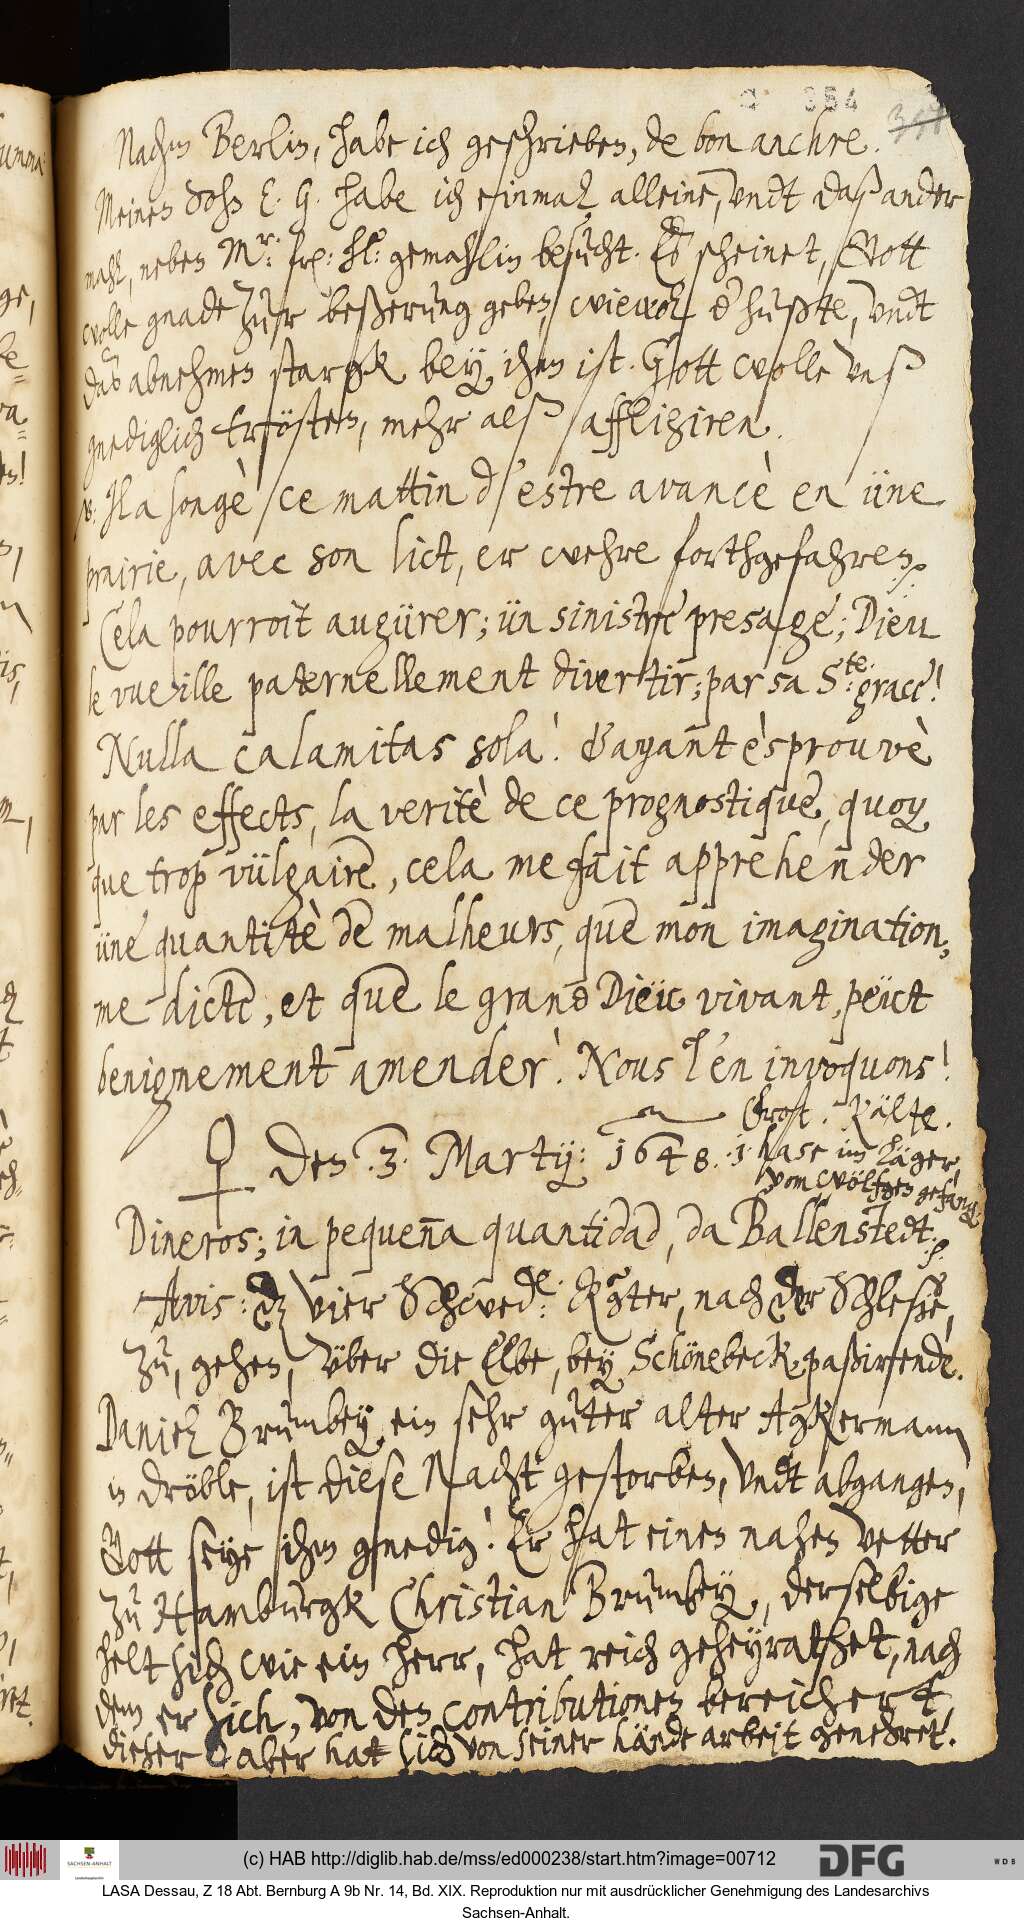 354
Nachm Berlin, habe ich geschrieben, de bon anchre.
Meinen Sohn E. G. habe ich einmal alleine, undt daß ander
mahl, neben Mr: fre: hl: gemahlin besucht. Es scheinet, Gott
wolle gnade zur beßerung geben, wiewol d' hußte, undt
das abnehmen starck bey ihm ist. Gott wolle unß
gnediglich trösten, mehr alß affligiren.
Il a songè ce mattin d'estre avancè en üne
prairie, avec son lict, er wehre forthgefahren.
Cela pourroit augürer; ün sinistre presage; Dieu
le vueille paternellement divertir; par sa Ste: grace!
Nulla calamitas sola! & ayant èsprouvè
par les effects, la veritè de ce prognostique, quoy
que trop vülgaire, cela me fait apprehender
üne quantitè de malheurs, que mon imagination,
me dicte, et que le grand Dieu vivant, peüct
benignement amender! Nous l'en invoquons!
♀ Den .3. Martij: 1648. .1. hase im läger
Frost. Kälte.
vom wölfgen gefang:
Dineros; in pequeña quantidad, da Ballenstedt.
Avis: dz vier Schwed: Rgter, nach der Schlesie,
zu, gehen, über die Elbe, bey Schönebeck paßirende.
Daniel Brumbey ein sehr guter alter Agkermann
in dröble, ist diese Nacht gestorben, undt abgangen,
Gott seye ihm gnedig! Er hat einen nahen Vetter
zu Hamburgk Christian Brumbey, derselbige
helt sich wie ein herr, hat reich geheyrathet, nach
dem er sich, von den contributionen bereichert,
dieser aber hat sich von seiner hände arbeit genehret.
(c) HAB http://diglib.hab.de/mss/ed000238/start.htm?image=00712
SACHSEN-ANHALT
DFG
WDB
LASA Dessau, Z 18 Abt. Bernburg A 9b Nr. 14, Bd. XIX. Reproduktion nur mit ausdrücklicher Genehmigung des Landesarchivs
Sachsen-Anhalt.